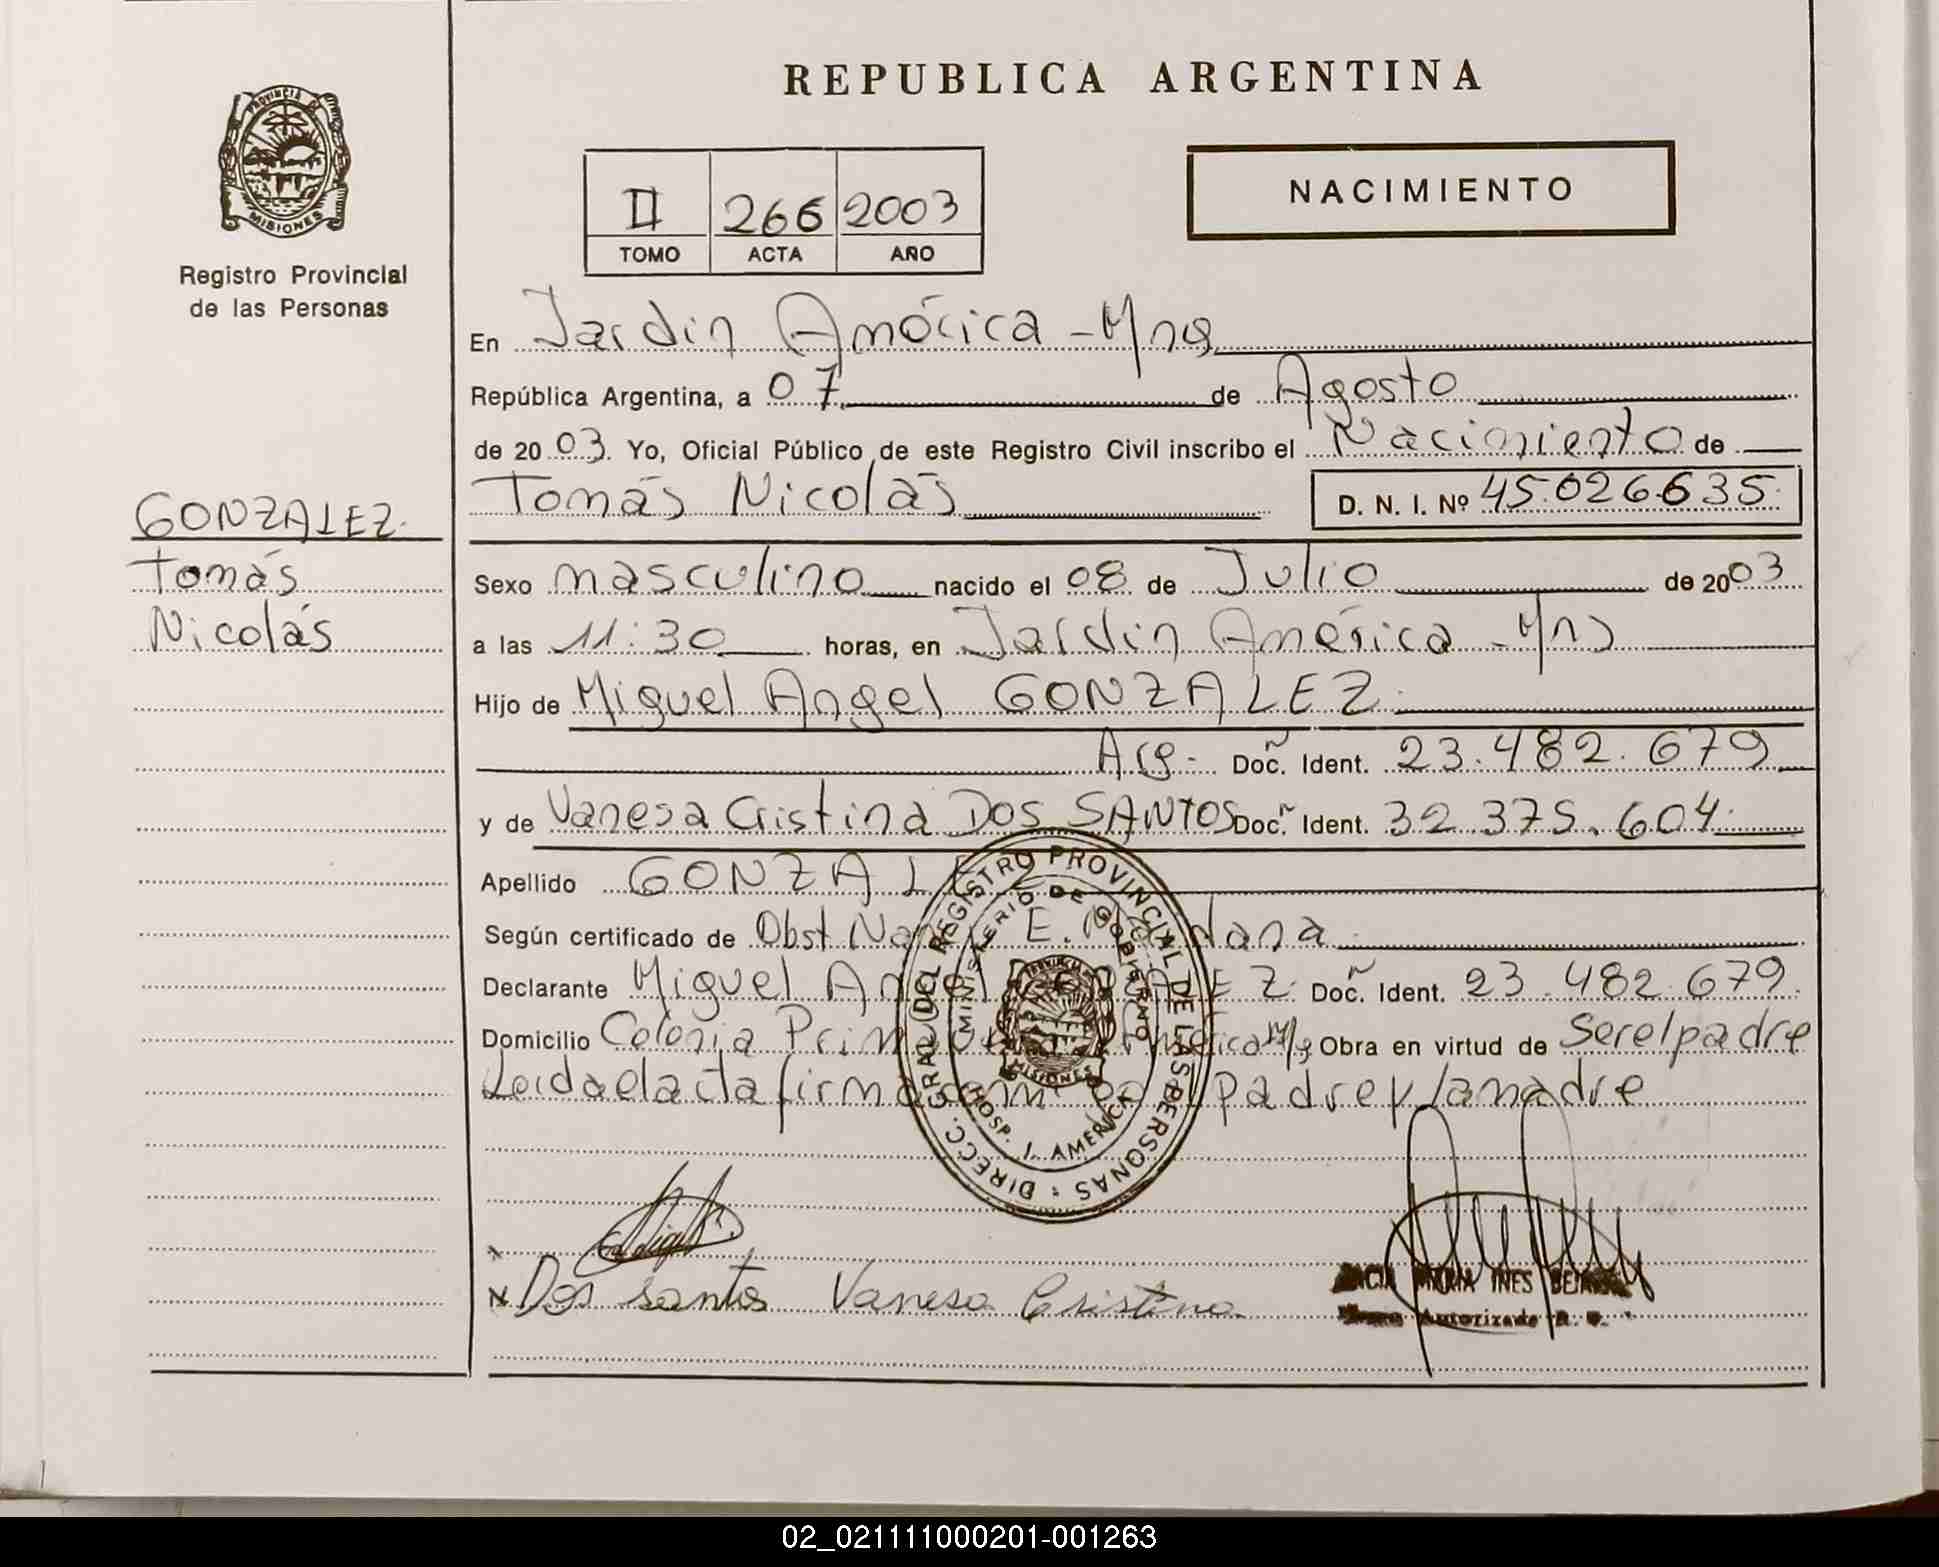 REPUBLICA ARGENTINA
PROVINCIA DE
MISIONES
Registro Provincial
de las Personas
II 266 2003
TOMO ACTA AÑO
NACIMIENTO
En Jardin América - Mns
República Argentina, a 07 de Agosto
de 2003. Yo, Oficial Público de este Registro Civil inscribo el Nacimiento de
Tomás Nicolás D. N. I. Nº 45.026.635
GONZALEZ
Tomás
Nicolás
Sexo masculino nacido el 08 de Julio de 2003
a las 11:30 horas, en Jardin América - Mns
Hijo de Miguel Angel GONZALEZ
Arg. Doc. Ident. 23.482.679
y de Vanesa Cristina DOS SANTOS Doc. Ident. 32.375.604
Apellido GONZALEZ
Según certificado de Obst E.
Declarante Miguel Angel GONZALEZ Doc. Ident. 23.482.679
Domicilio Colonia América Obra en virtud de Ser el padre
Leida el acta firma padre y la madre
DIRECC. GRAL. DEL REGISTRO PROVINCIAL DE LAS PERSONAS
MINISTERIO DE GOBIERNO
PROVINCIA
MISIONES
HOSP. J. AMERICA
x
x Dos santos Vanesa Cristina
MARIA INES
Autorizada
02_021111000201-001263